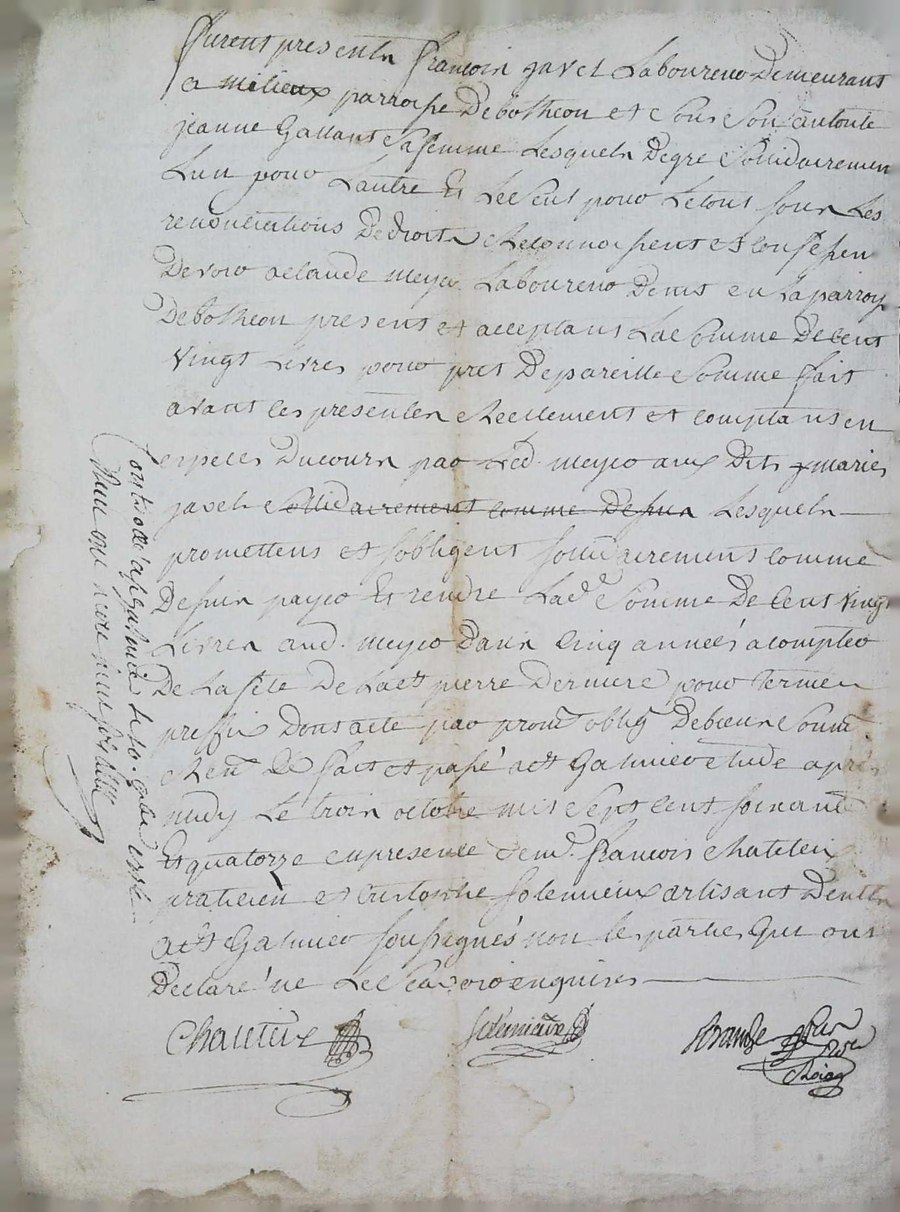 furent presents françois javel Laboureur Demeurant
a milieux parroisse De botheon et sous son autorité
jeanne Gallant sa femme Lesquels De gré Sollidairement
Lun pour Lautre Et Le seul pour Le tout sous Les
renontiations De droits Reconnoissent et confessent
Devoir a claude meyer Laboureur Demt en La parroisse
De botheon present et acceptant La somme De cent
vingt Livres pour prest De pareille somme fait
avant ces presentes Reellement et comptant en
especes Du cours par Led. meyer aux Dits maries
javel sollidairement comme Dessus Lesquels
promettent et sobligent sollidairement comme
Dessus payer Et rendre Lade somme De Cent vingt
Livres aud. meyer Dans Cinq années a compter
De La fête De La St pierre Derniere pour terme
preffix Dont acte par prom oblig De biens Soum
Ren De fait et passé a St Galmier etude apres
midy Le trois octobre mil sept cent soixante
Et quatorze en presence de me. françois Chatelus
praticien et cristophe solemieux artisant Demts
a St Galmier soussignés non les parties qui ont
Declaré ne Le sçavoir enquises
Chautelus
solemieux
a St Galmier Le 10.